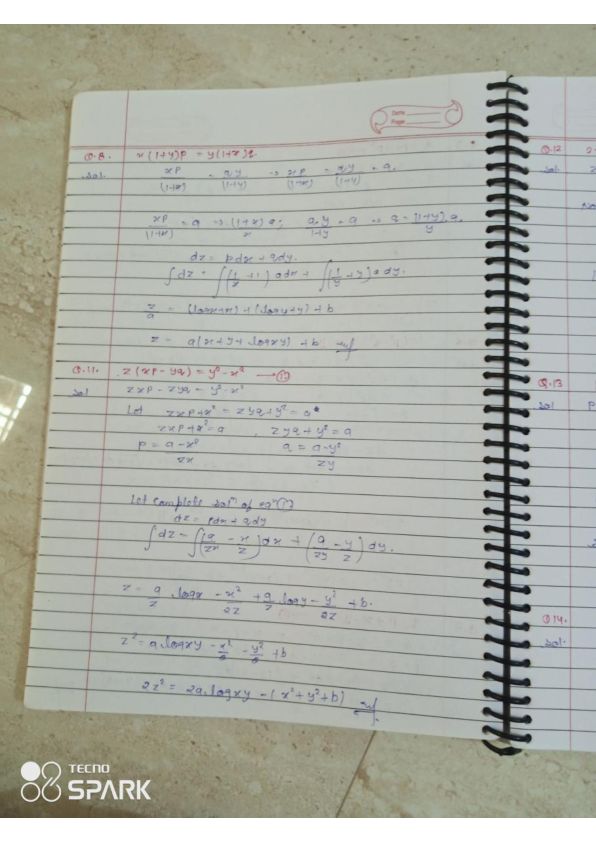 Date
Page
Q.8. x(1+y)p = y(1+x)q.
Sol. xp/(1+x) = qy/(1+y) ⇒ xp/(1+x) = qy/(1+y) = a.
xp/(1+x) = a ⇒ (1+x)a/x ; qy/(1+y) = a ⇒ q = (1+y)a/y
dz = pdx + qdy.
∫dz = ∫(1/x + 1) adx + ∫(1/y + y) a dy.
z/a = (logx+x) + (logy+y) + b
z = a(x+y+logxy) + b
Q.11. z(xp - yq) = y² - x² → ①
Sol zxp - zyq = y² - x²
Let zxp + x² = zyq + y² = a
zxp + x² = a , zyq + y² = a
p = a-x²/zx q = a-y²/zy
Let complete solⁿ of eqⁿ ①
dz = pdx + qdy
∫dz = ∫(a/zx - x/z)dx + (a/zy - y/z)dy.
z = a/z logx - x²/2z + a/z logy - y²/2z + b.
z² = a logxy - x²/2 - y²/2 + b
2z² = 2a logxy - (x² + y² + b)
Q.12
Sol.
Q.13
Sol P
Q14.
Sol.
TECNO
SPARK